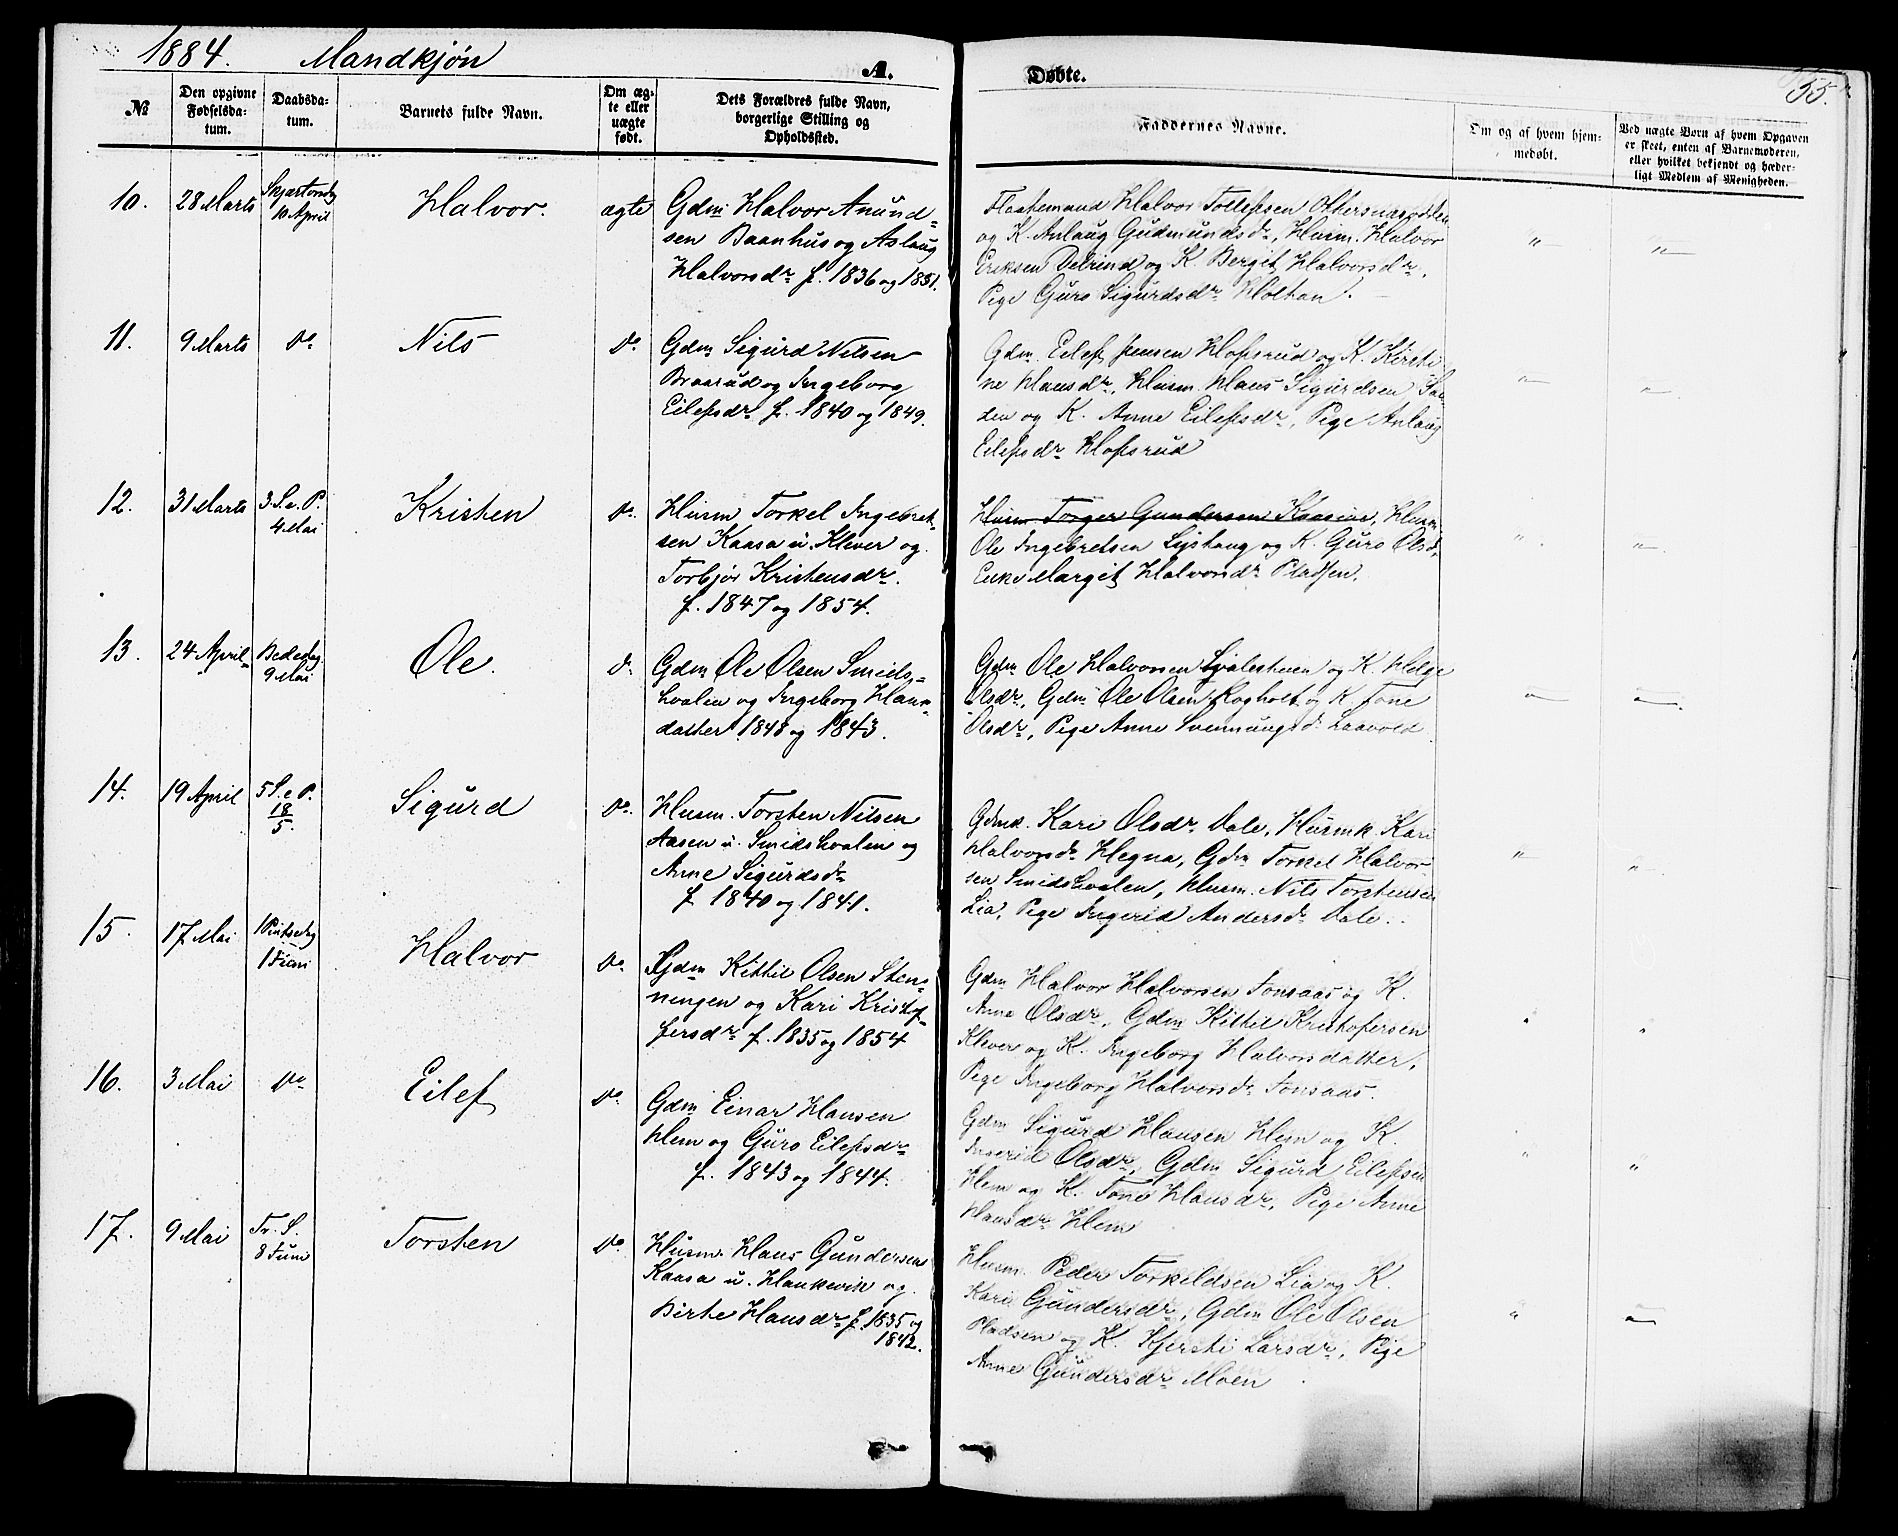 1884. Mandkjøn A. Døbte. 55.
№
Den opgivne Fødselsdatum.
Daabsdatum.
Barnets fulde Navn.
Om ægte eller uægte født.
Dets Forældres fulde Navn, borgerlige Stilling og Opholdssted.
Faddernes Navne.
Om og af hvem hjemmedøbt.
Ved uægte Børn af hvem Opgaven er skeet, enten af Barnemoderen, eller hvilket bekjendt og hæderligt Medlem af Menigheden.
10. 28 Marts Skjærtorsdag 10 April Halvor. ægte
Gdm Halvor Amund-
sen Baanhus og Aslaug
Halvorsdr f. 1836 og 1851.
Flaatemand Halvor Tollefsen
og K. Anlaug Gudmundsdr, Husm. Halvor
Eriksen og K. Bergit Halvorsdr,
Pige Guro Sigurdsdr Holtan.
" "
11. 9 Marts Do Nils Do
Gdm Sigurd Nilsen
Braarud og Ingeborg
Eilefsdr f. 1840 og 1849.
Gdm. Eilef Jensen Hofsrud og K. Kirsti-
ne Hansdr, Husm. Hans Sigurdsen
og K. Anne Eilefsdr, Pige Anlaug
Eilefsdr Hofsrud
" "
12. 31 Marts 3 S. e. P. 4 Mai Kristen Do
Husm Torkel Ingebret-
sen Kaasa u. Klever og
Torbjør Kristensdr.
f. 1847 og 1854.
Husm Torger Gundersen, Husm
Ole Ingebretsen Lishaug og K. Guro Olsdr,
Enke Margit Halvorsdr Pladsen.
" "
13. 24 April Bededag 9 Mai Ole. Do
Gdm Ole Olsen Smids-
hvalen og Ingeborg Hans-
datter 1848 og 1843.
Gdm Ole Halvorsen og K. Helge
Olsdr, Gdm Ole Olsen Rogholt og K. Tone
Olsdr, Pige Anne Svennungsdr Laavold
" "
14. 19 April 5 S. e. P. 18/5. Sigurd Do
Husm. Torsten Nilsen
Aasen u. Smidshvalen og
Anne Sigurdsdr
f 1840 og 1841.
Gdmk. Kari Olsdr Dale, Husmk. Kari
Halvorsdr Hegna, Gdm Torkel Halvor-
sen Smidshvalen, Husm. Nils Torstensen
Lia, Pige Ingerid Andersdr Dale.
" "
15. 17 Mai 1 Pintsedag 1 Juni Halvor Do
Gdm Kittil Olsen Sten-
ningen og Kari Kristof-
fersdr f. 1835 og 1854
Gdm Halvor Halvorsen Tonsaas og K.
Anne Olsdr, Gdm Kittil Kristofersen
Klever og K. Ingeborg Halvorsdatter,
Pige Ingeborg Halvorsdr Tonsaas.
" "
16. 3 Mai Do Eilef Do
Gdm Einar Hansen
Hem og Guro Eilefsdr
f. 1843 og 1844.
Gdm Sigurd Hansen Hem og K.
Ingerid Olsdr, Gdm Sigurd Eilefsen
Hem og K. Tone Hansdr, Pige Anne
Hansdr Hem
" "
17. 9 Mai Tr. S. 8 Juni Torsten Do
Husm. Hans Gundersen
Kaasa u. Haukevik og
Birte Hansdr f. 1835 og
1842.
Husm. Peder Torkeldsen Lia og K.
Kari Gundersdr, Gdm Ole Olsen
Pladsen og K. Kjersti Larsdr, Pige
Anne Gundersdr Moen
" "